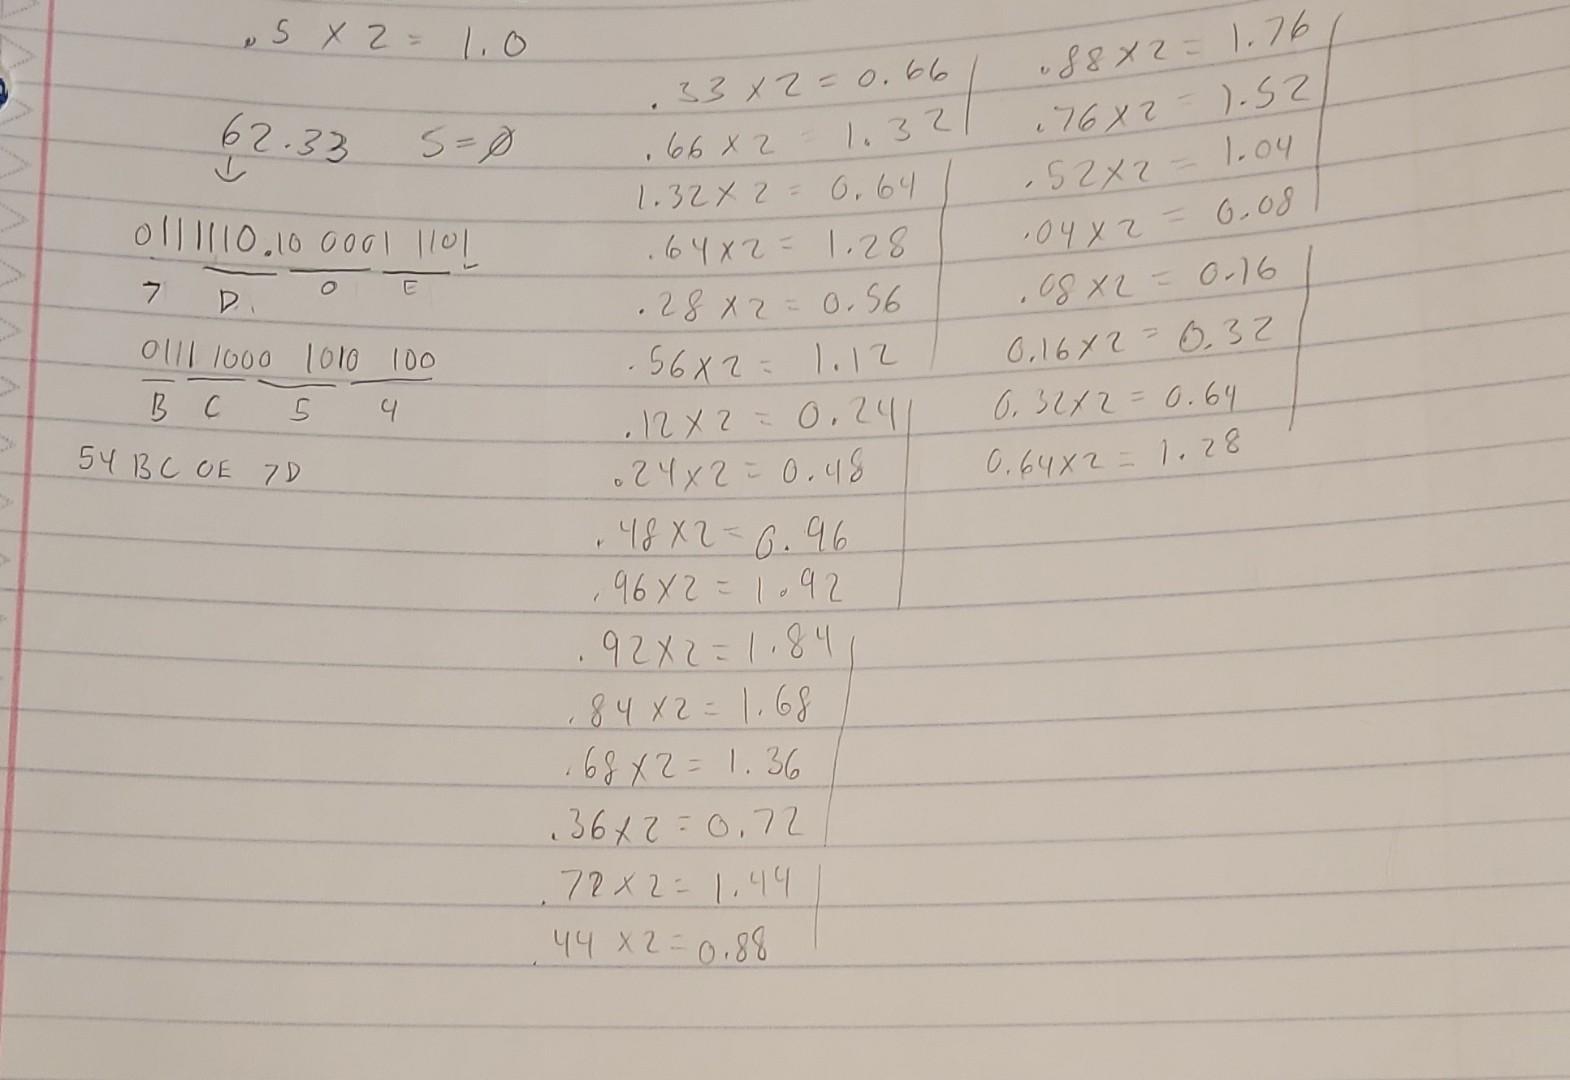 .5 X 2 = 1.0
62.33 S=Ø
↓
0111110.10 0001 1101
7 D. 0 E
0111 1000 1010 100
B C 5 4
54 BC 0E 7D
.33 X 2 = 0.66
.66 X 2 = 1.32
1.32 X 2 = 0.64
.64 X 2 = 1.28
.28 X 2 = 0.56
.56 X 2 = 1.12
.12 X 2 = 0.24
.24 X 2 = 0.48
.48 X 2 = 0.96
.96 X 2 = 1.92
.92 X 2 = 1.84
.84 X 2 = 1.68
.68 X 2 = 1.36
.36 X 2 = 0.72
.72 X 2 = 1.44
.44 X 2 = 0.88
.88 X 2 = 1.76
.76 X 2 = 1.52
.52 X 2 = 1.04
.04 X 2 = 0.08
.08 X 2 = 0.16
0.16 X 2 = 0.32
0.32 X 2 = 0.64
0.64 X 2 = 1.28